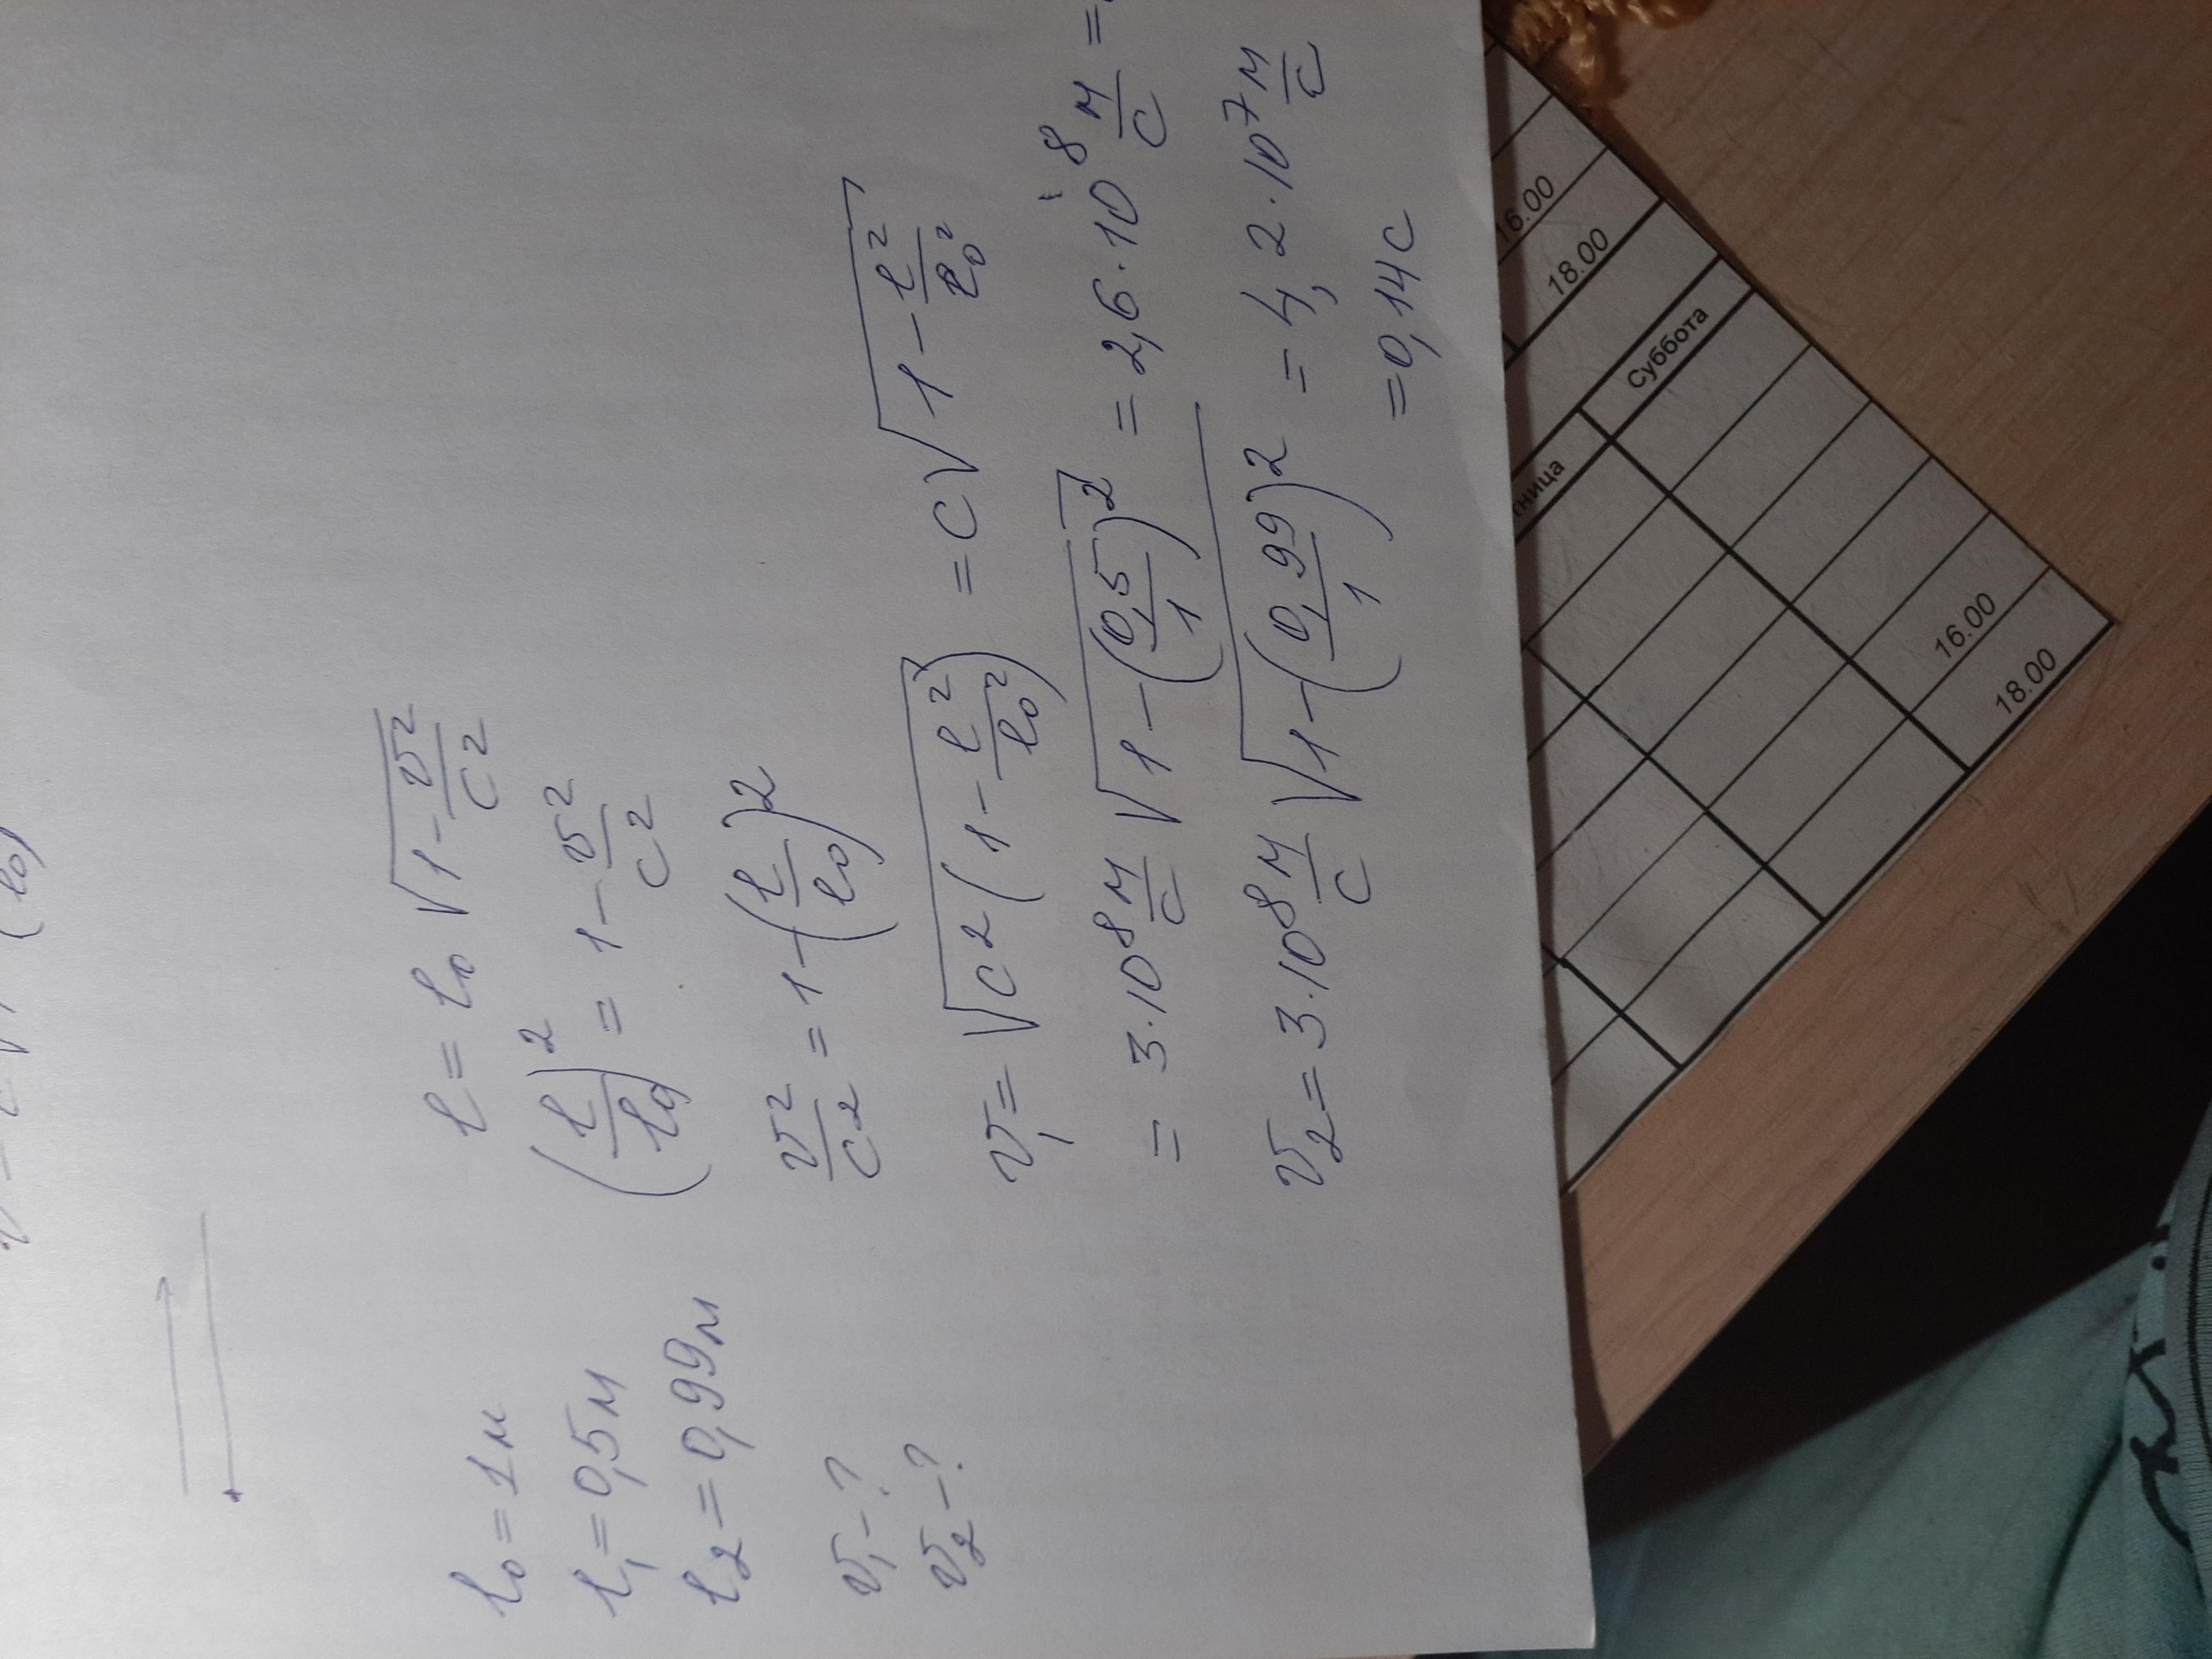 l₀ = 1м
l₁ = 0,5м
l₂ = 0,99м
v₁ - ?
v₂ - ?
l = l₀ √(1 - v²/c²)
(l/l₀)² = 1 - v²/c²
v²/c² = 1 - (l/l₀)²
v₁ = √(c² (1 - l²/l₀²)) = c √(1 - l²/l₀²)
= 3·10⁸ м/с √(1 - (0,5/1)²) = 2,6·10⁸ м/с =
v₂ = 3·10⁸ м/с √(1 - (0,99/1)²) = 4,2·10⁷ м/с
= 0,14c
16.00
18.00
Суббота
16.00
18.00